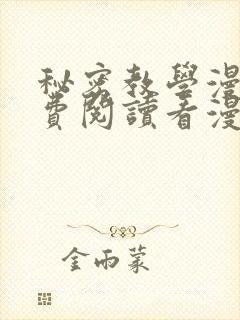 秘密教學漫
費閱讀看漫
金雨蒙